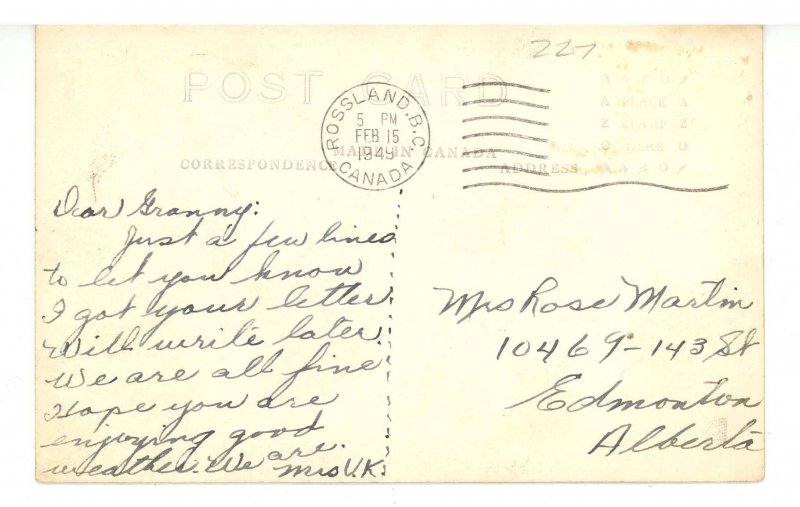 227
POST CARD
ROSSLAND. B.C.
5 PM
FEB 15
1949
CANADA
MADE IN CANADA
CORRESPONDENCE
ADDRESS
A Z O
A PLACE A
Z STAMP Z
O HERE O
A Z O
Dear Granny:
Just a few lines
to let you know
I got your letter
Will write later.
We are all fine
Hope you are
enjoying good
weather. We are.
Mrs V.K.
Mrs Rose Martin
10469-143 St
Edmonton
Alberta